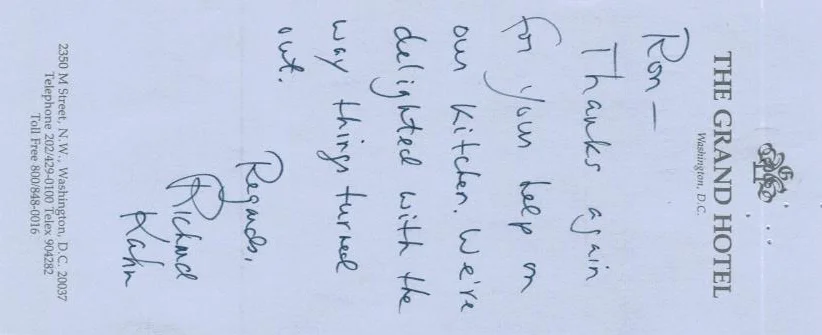 THE GRAND HOTEL
Washington, D.C.
Ron —
Thanks again
for your help on
our kitchen. We're
delighted with the
way things turned
out.
Regards,
Richard
Kahn
2350 M Street, N.W., Washington, D.C. 20037
Telephone 202/429-0100 Telex 904282
Toll Free 800/848-0016